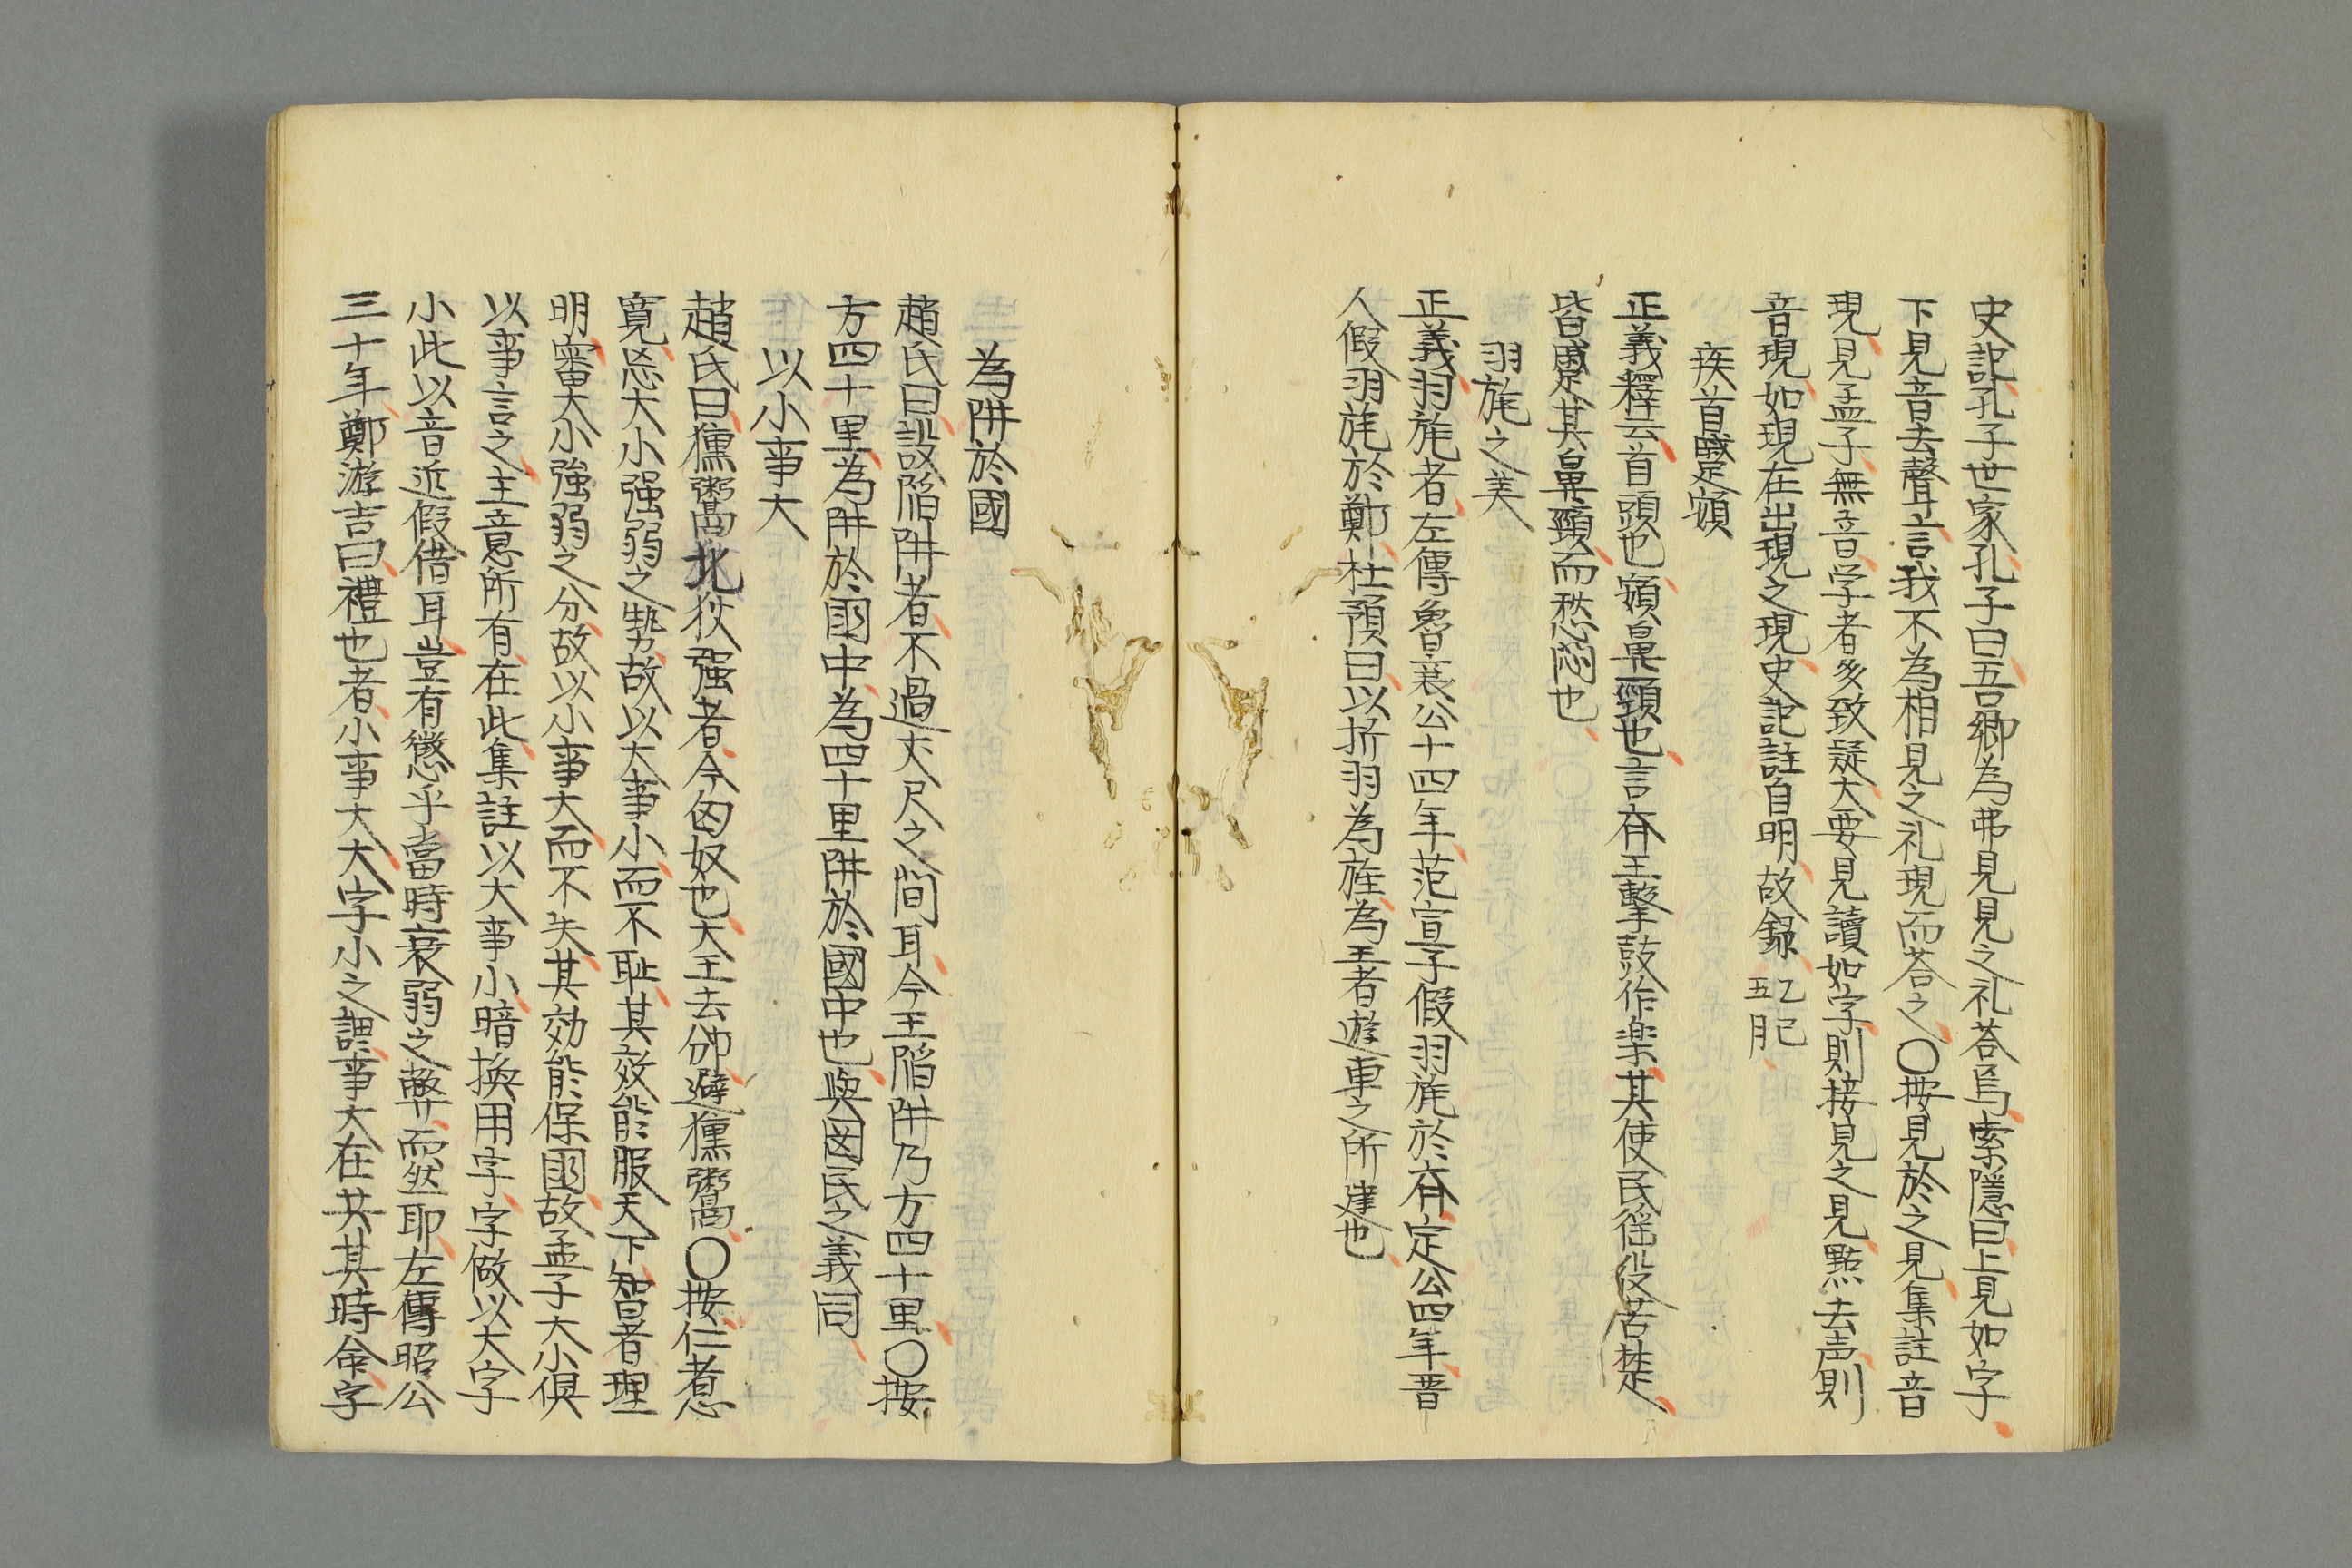 史記孔子世家孔子曰吾卿為弗見見之礼荅焉索隱曰上見如字
下見音去聲言我不為相見之礼現而荅之〇按見於之見集註音
現見孟子無音学者多致疑大要見讀如字則接見之見點去声則
音現如現在出現之現史記註自明故録乙巳五月
疾首蹙頞
正義釋云首頭也頞鼻頸也言齊王擊鼓作楽其使民徭役苦楚
皆蹙其鼻頸而愁悶也
羽旄之美
正義羽旄者左傳魯襄公十四年范宣子假羽旄於齊定公四年晋
人假羽旄於鄭杜預曰以折羽為旌為王者遊車之所建也
為阱於國
趙氏曰設陷阱者不過丈尺之间耳今王陷阱乃方四十里〇按
方四十里為阱於國中為四十里阱於國中也與囡民之義同
以小事大
趙氏曰獯鬻北狄强者今匈奴也大王去邠避獯鬻〇按仁者惠
寛忘大小强弱之勢故以大事小而不耻其效能服天下智者理
明審大小強弱之分故以小事大而不失其効能保國故孟子大小俱
以事言之主意所有在此集註以大事小暗換用字字做以大字
小此以音近假借耳豈有懲乎當時衰弱之弊而然耶左傳昭公
三十年鄭游吉曰禮也者小事大大字小之謂事大在共其時命字